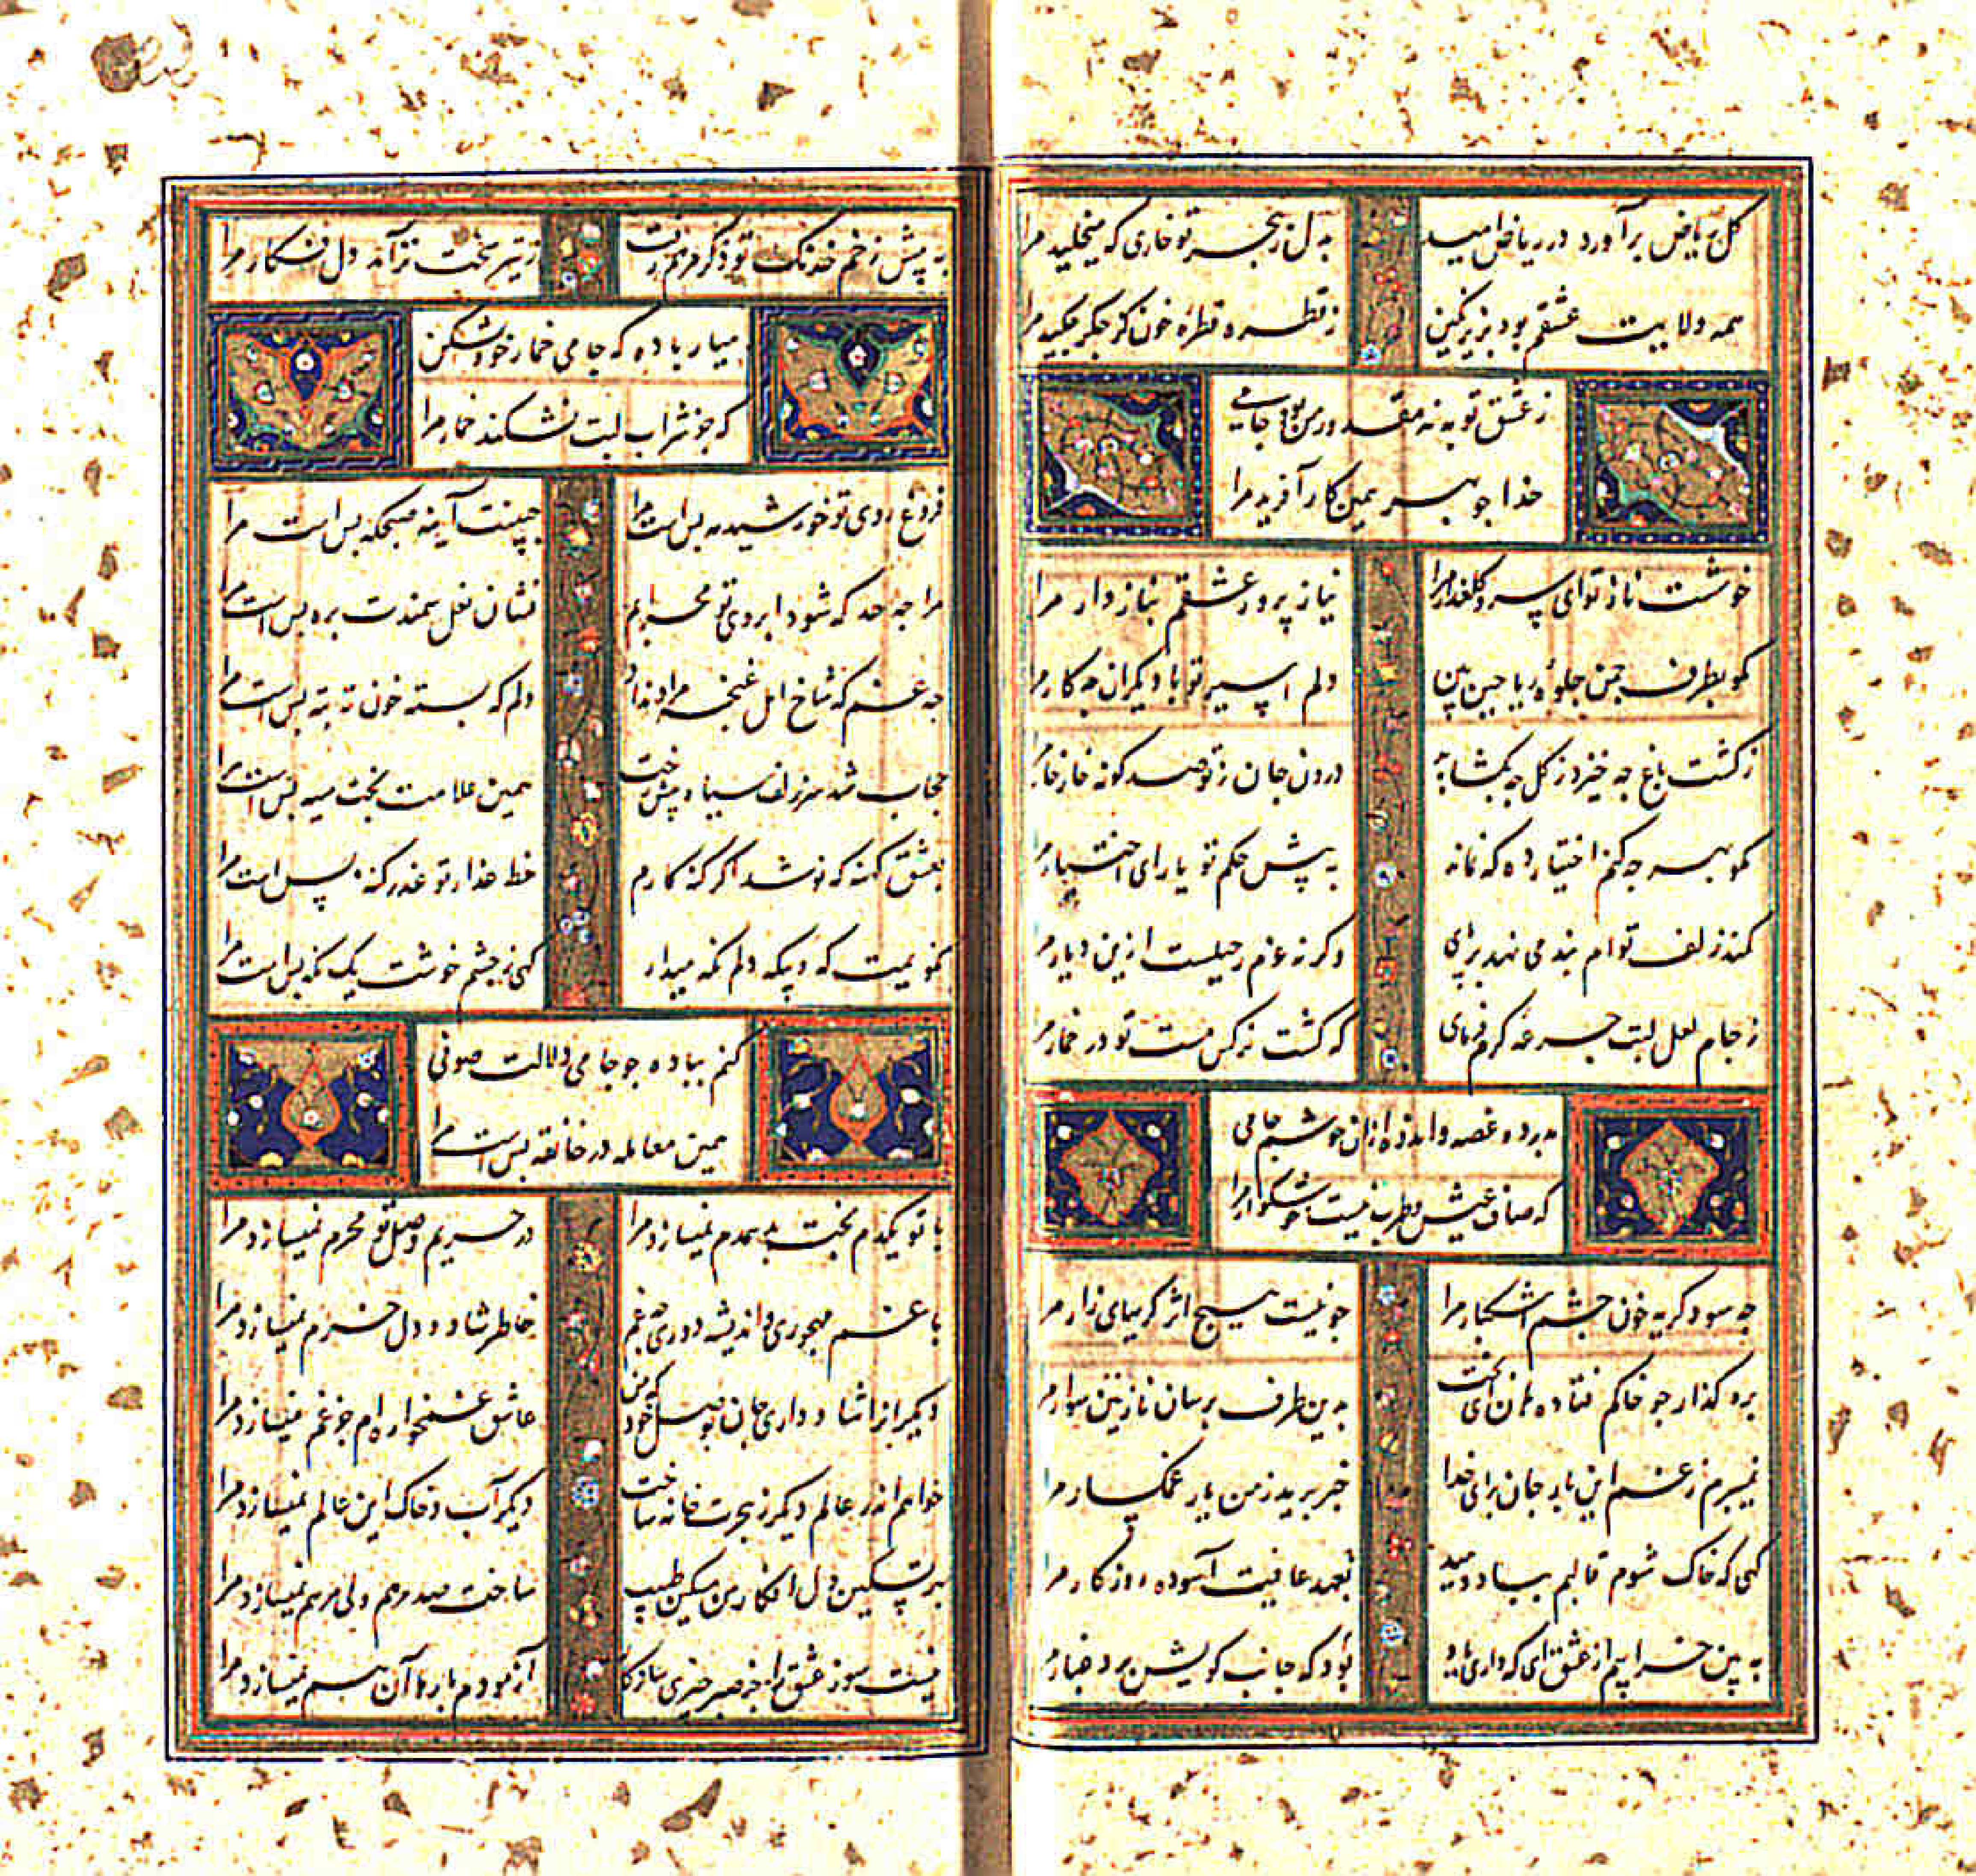 گل ریاض برآورد در ریاض امید
به دل ز هجر تو خاری که میخلید مرا
همه ولایت عشقم بود بزیر نگین
ز قطره قطره خون کز جگر چکید مرا
ز عشق توبه نه مقدور من بود جامی
خدا چو بهر همین کار آفرید مرا
خوشست ناز تو ای سرو گلعذار مرا
نیاز پرور عشقم بناز دار مرا
مکو بطرف چمن جلوه ریاحین بین
دلم اسیر تو با دیکران چه کار مرا
ز کشت باغ چه خیزد ز کل چه بکشاید
درون جان ز تو صد کونه خار خار مرا
مکو بهر چه کنم اختیار ده که نماند
به پیش حکم تو یارای اختیار مرا
کمند زلف توام بند می نهد بر پای
وکر نه عزم رحیلست ازین دیار مرا
ز جام لعل لبت جرعه کرم فرمای
که کشت نرکس مست تو در خمار مرا
بدرد و غصه و اندوه ازان خوشم جامی
که صاف عیش و طرب نیست خوشکوار مرا
چه سود کریه خون چشم اشکبار مرا
چو نیست هیچ اثر کریهای زار مرا
بره کذار چو خاکم فتاده هان ای بخت
بدین طرف برسان نازنین سوار مرا
نمیبرم ز غم این بار جان برای خدا
خبر برید ز من یار غمکسار مرا
کهی که خاک شوم قالبم بباد دهید
بعهد عافیت آسوده روزکار مرا
بود که جانب کویش برد غبار مرا
به پیش زخم خدنک تو ذکر مرهم رفت
ز تیر سخت تر آمد دل فکار مرا
میار باده که جامی خمار خود شکن
که جز شراب لبت نشکند خمار مرا
فروغ روی تو خورشید و مه بس است مرا
جبینت آینه صبحکه بس است مرا
مرا چه حد که شود ابروی تو محرابم
نشان نعل سمندت بره بس است مرا
چه غم که شاخ امل غنچه مراد نداد
دلم که بسته خون ته به ته بس است مرا
حجاب شد سر زلف سیاه و پیش رخت
همین علامت بخت سیه بس است مرا
بعشق کهنه که نو شد اکر کنه کارم
خط عذار تو عذر کنه بس است مرا
کهی ز چشم خوشت یک نکه بس است مرا
کنم بباده چو جامی دلالت صوفی
همین معامله در خانقه بس است مرا
با تو یکدم بخت بد همدم نمیسازد مرا
در حریم وصل تو محرم نمیسازد مرا
با غم مهجوری و اندیشه دوری چه غم
خاطر شاد و دل خرم نمیسازد مرا
دیکرانرا شاد داری جان بوصل خود که من
عاشق غمخواره ام جز غم نمیسازد مرا
خواهم اندر عالم دیکر ز هجرت خانه ساخت
دیکر آب و خاک این عالم نمیسازد مرا
بهر تسکین دل افکار من مسکین طبیب
ساخت صد مرهم ولی مرهم نمیسازد مرا
نیست سوز عشق را جز صبر چیزی سازکار
آزمودم بارها آن هم نمیسازد مرا